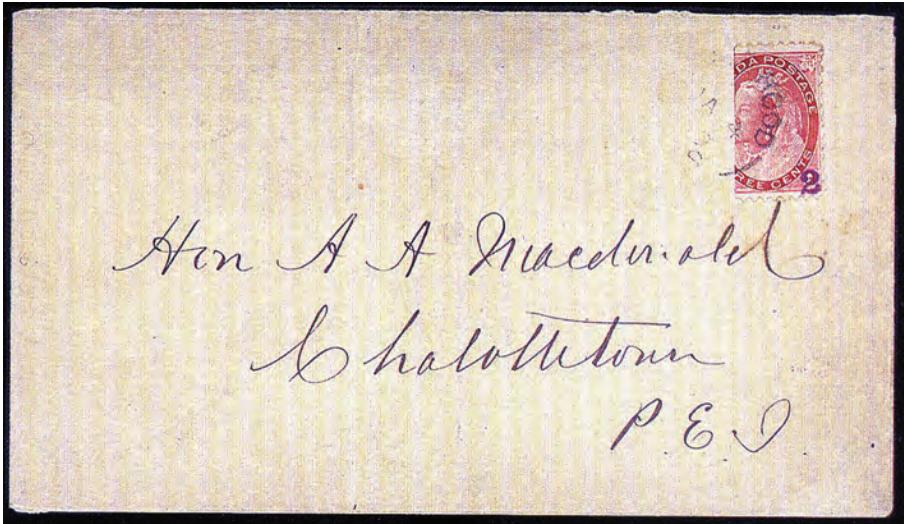 DA POSTAGE
REE CENTS
2
Hon A A Macdonald
Chalottetown
P.E.I